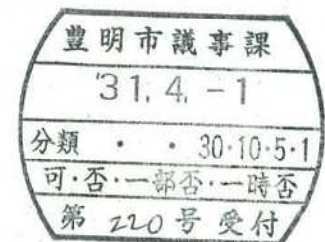 豊明市議事課
'31.4.-1
分類 ・ ・ 30・10・5・1
可・否・一部否・一時否
第 220 号 受付